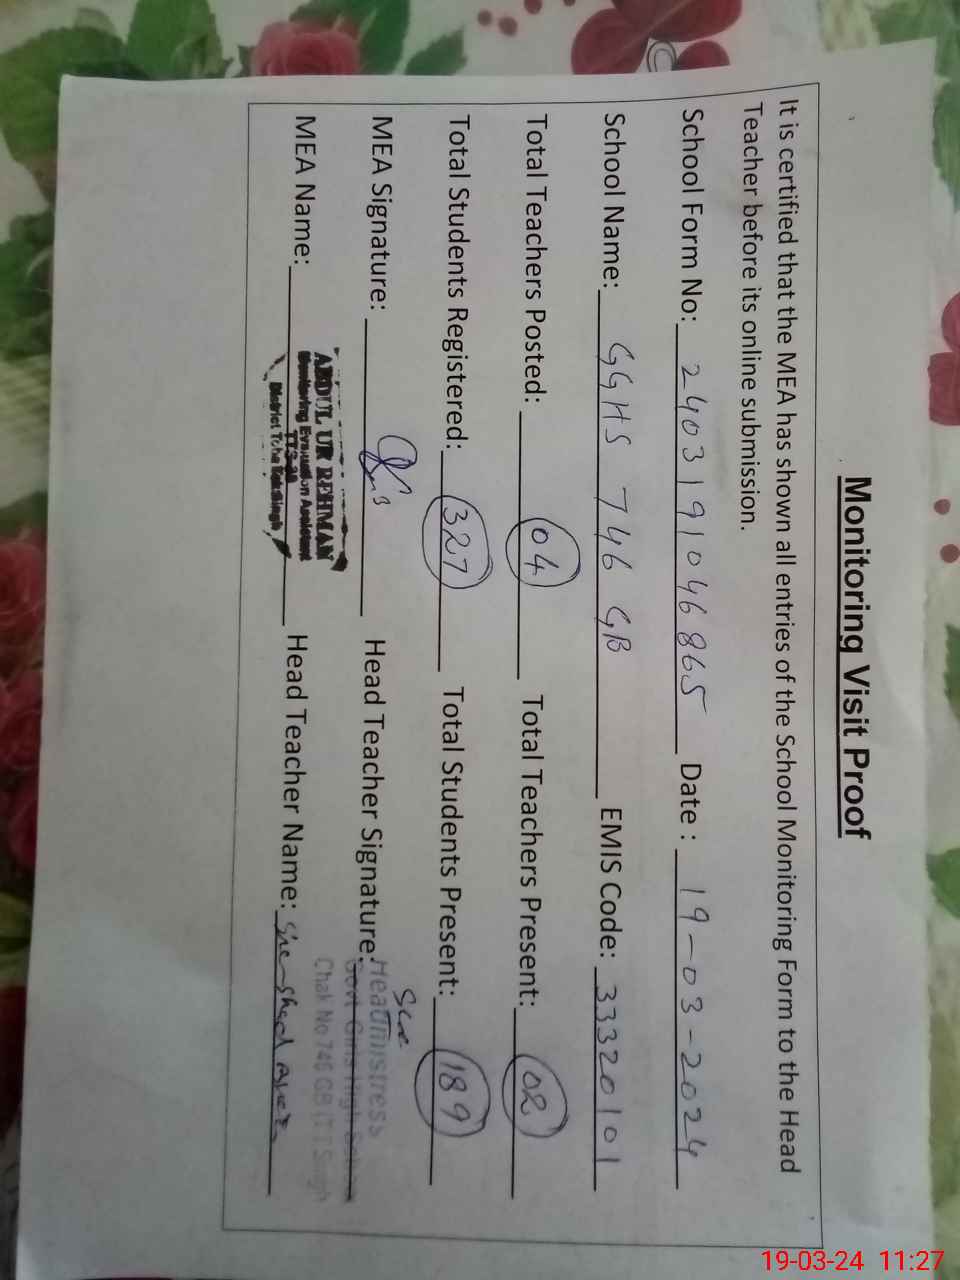 Monitoring Visit Proof
It is certified that the MEA has shown all entries of the School Monitoring Form to the Head
Teacher before its online submission.
School Form No: 2403191046865 Date : 19-03-2024
School Name: GGHS 746 GB EMIS Code: 33320101
Total Teachers Posted: 04 Total Teachers Present: 02
Total Students Registered: 327 Total Students Present: 189
MEA Signature: Head Teacher Signature:
Headmistress
Govt Girls High School
Chak No 746 GB (T.T Singh
MEA Name: Head Teacher Name:
ABDUL UR REHMAN
Monitoring Evaluation Assistant
District Toba Tek Singh
19-03-24 11:27